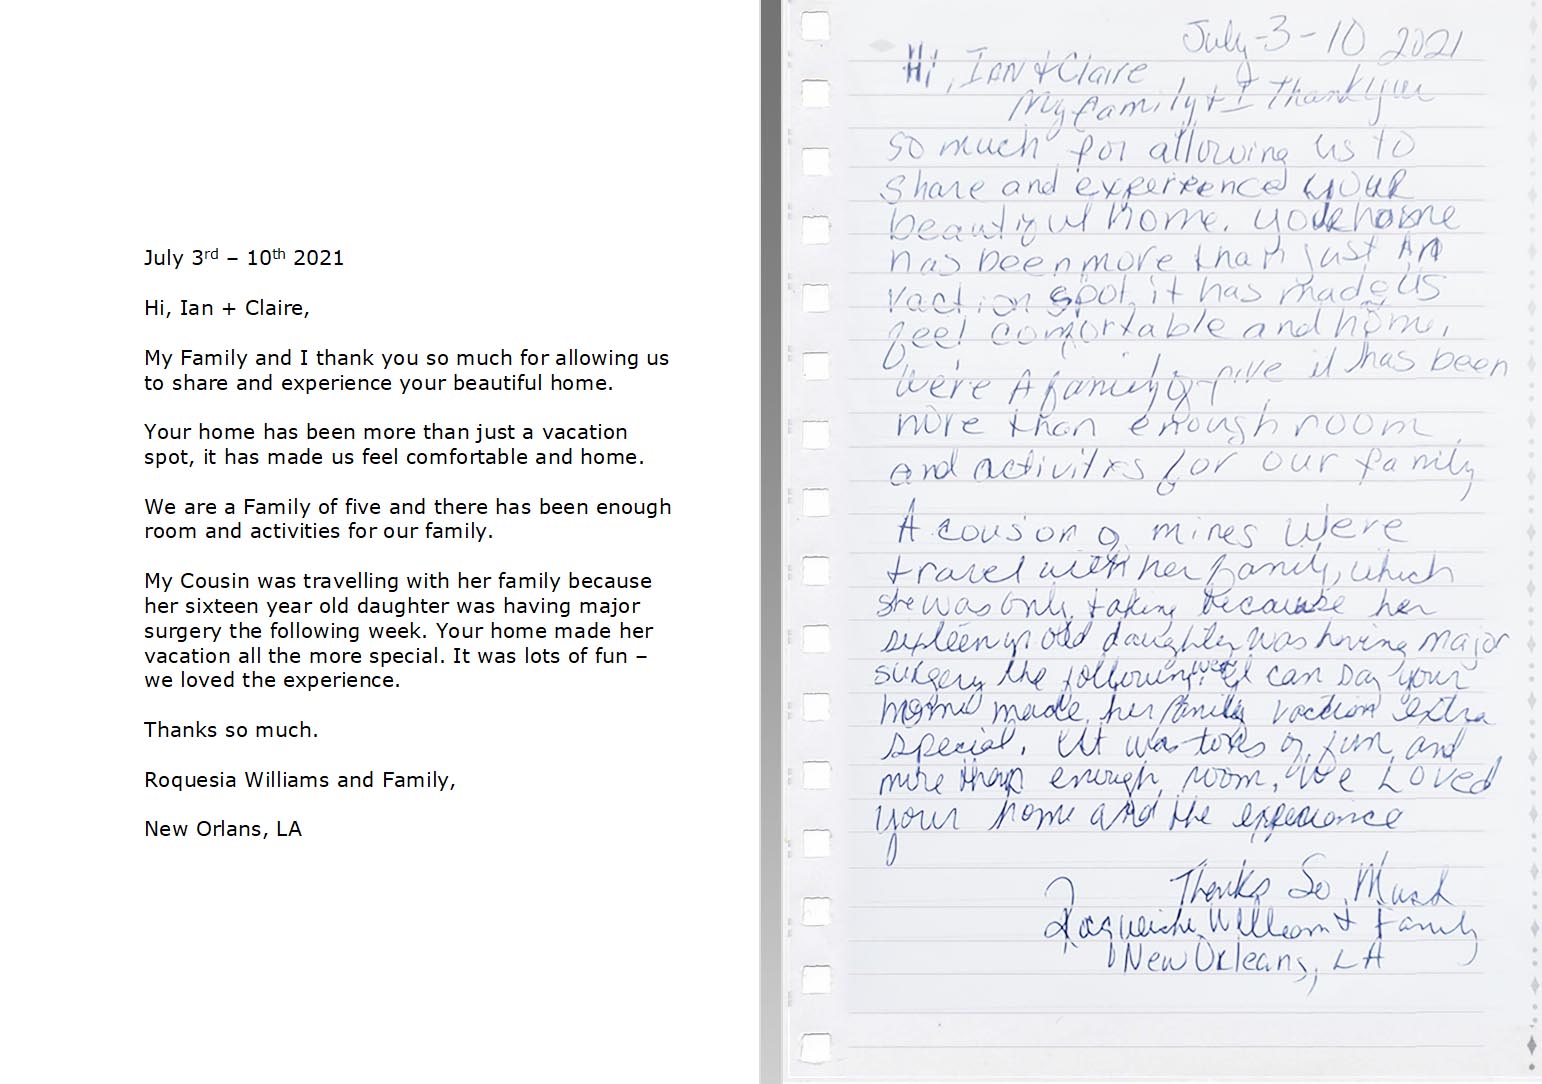 July 3rd – 10th 2021
Hi, Ian + Claire,
My Family and I thank you so much for allowing us
to share and experience your beautiful home.
Your home has been more than just a vacation
spot, it has made us feel comfortable and home.
We are a Family of five and there has been enough
room and activities for our family.
My Cousin was travelling with her family because
her sixteen year old daughter was having major
surgery the following week. Your home made her
vacation all the more special. It was lots of fun –
we loved the experience.
Thanks so much.
Roquesia Williams and Family,
New Orlans, LA
July -3-10 2021
Hi, IAN + Claire
My family + I Thank you
so much for allowing us to
share and experienced your
beautiful home. your home
has been more than just AN
vaction spot, it has made us
feel comfortable and home,
were A family of five it has been
more than enough room
and activitys for our family
A cousion of mines were
travel with her family, which
she was only taking because her
sixteen yr old daughter was having major
surgery the following week I can say your
home made her family vaction extra
special. It was of fun and
more than enough room. We Loved
your home and the experiance
Thanks So Much
William + Family
New Orleans, LA